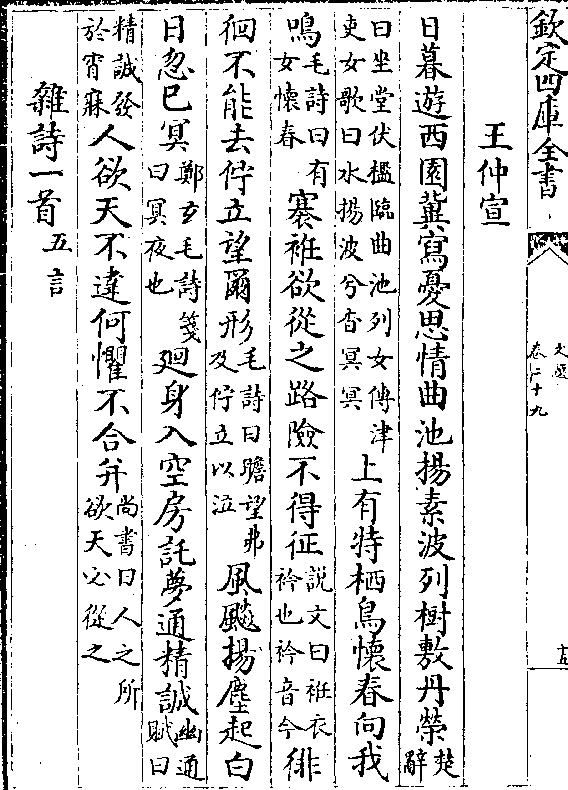 欽定四庫全書
文選
卷二十九
王仲宣
日暮遊西園冀寫憂思情曲池揚素波列樹敷丹榮楚辭
曰坐堂伏檻臨曲池列女傳津吏女歌曰水揚波兮杳冥冥上有特栖鳥懷春向我
鳴毛詩曰有女懷春褰袵欲從之路險不得征說文曰袵衣衿也衿音今徘
徊不能去佇立望爾形毛詩曰瞻望弗及佇立以泣風飈揚塵起白
日忽已冥鄭玄毛詩箋曰冥夜也廻身入空房託夢通精誠幽通賦曰
精誠發於宵寐人欲天不違何懼不合并尚書曰人之所欲天必從之
雜詩一首五言